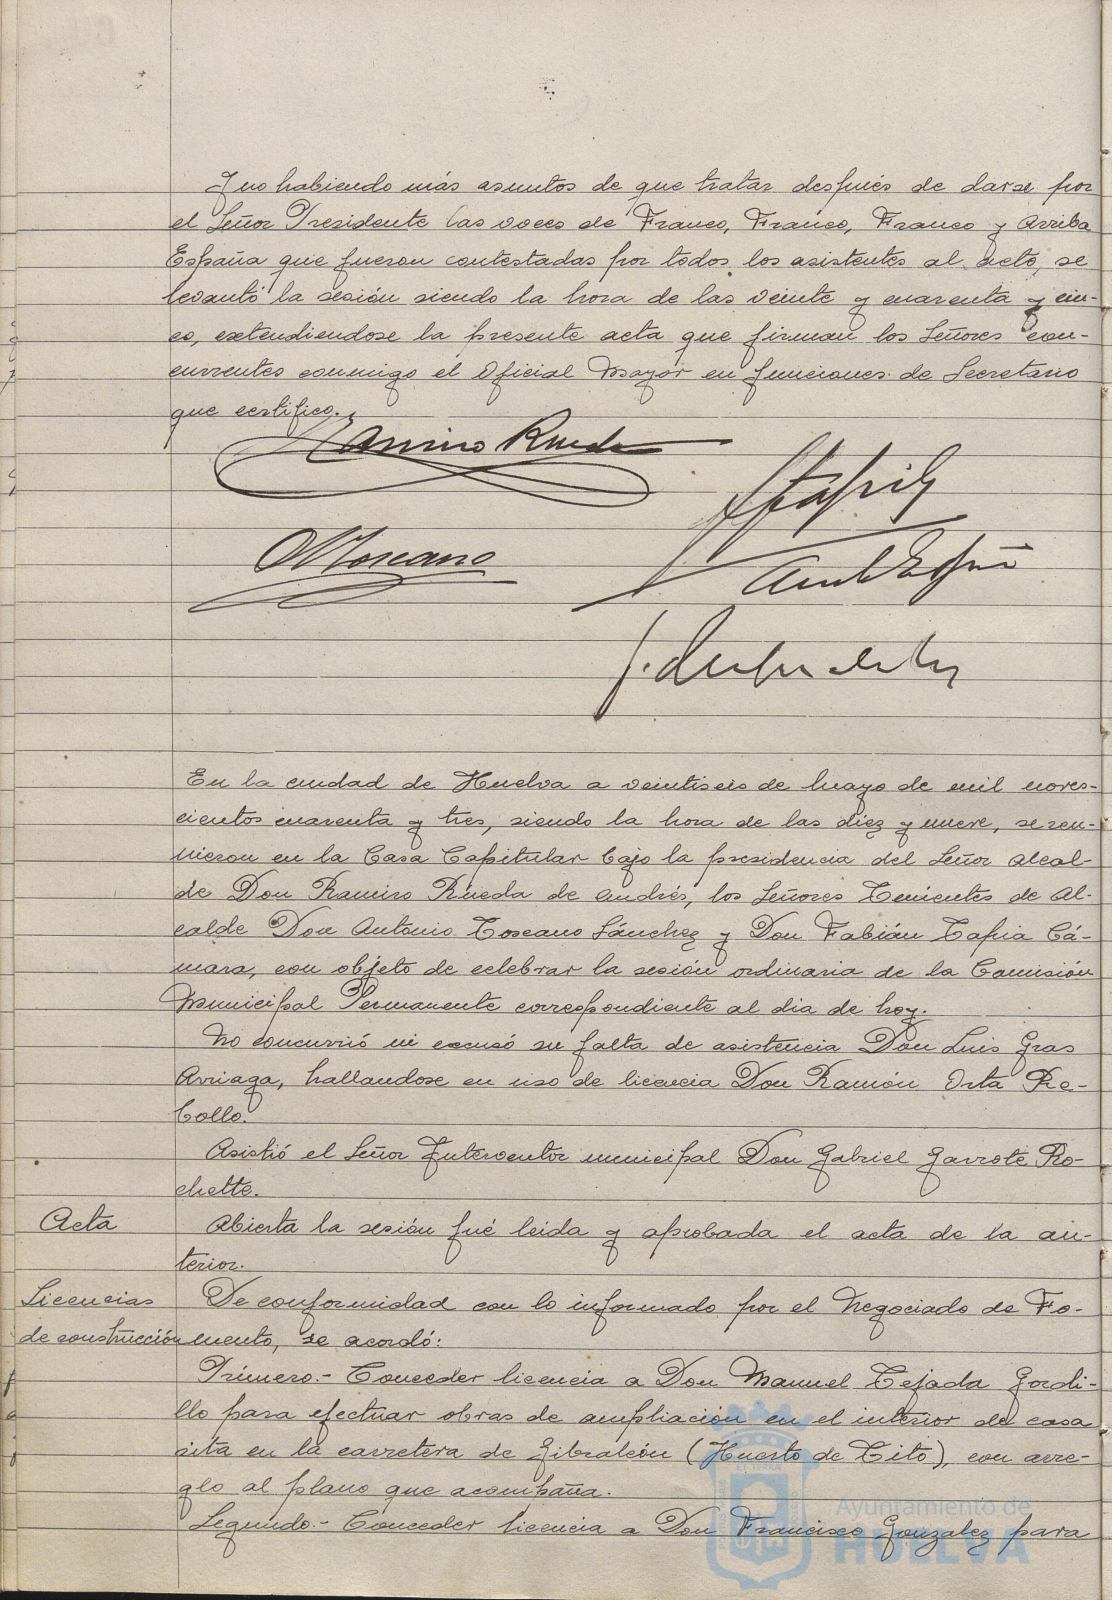 Y no habiendo más asuntos de que tratar después de darse por
el Señor Presidente las voces de Franco, Franco, Franco y Arriba
España que fueron contestadas por todos los asistentes al acto, se
levantó la sesión siendo la hora de las veinte y cuarenta y cin-
co, extendiendose la presente acta que firman los Señores con-
currentes conmigo el Oficial Mayor en funciones de Secretario
que certifico.
Ramiro Rueda
A Toscano
En la ciudad de Huelva a veintiseis de Mayo de mil noves-
cientos cuarenta y tres, siendo la hora de las diez y nueve, se reu-
nieron en la Casa Capitular bajo la presidencia del Señor Alcal-
de Don Ramiro Rueda de Andrés, los Señores Tenientes de Al-
calde Don Antonio Toscano Sánchez y Don Fabián Tapia Cá-
mara, con objeto de celebrar la sesión ordinaria de la Comisión
Municipal Permanente correspondiente al dia de hoy.
No concurrió ni excusó su falta de asistencia Don Luis Gras
Arriaga, hallandose en uso de licencia Don Ramón Orta Re-
bollo.
Asistió el Señor Interventor municipal Don Gabriel Garrote Ro-
chette.
Acta
Abierta la sesión fué leida y aprobada el acta de la an-
terior.
Licencias
de construcción
De conformidad con lo informado por el Negociado de Fo-
mento, se acordó:
Primero.- Conceder licencia a Don Manuel Tejada Gordi-
llo para efectuar obras de ampliación en el interior de casa
sita en la carretera de Gibraleón (Huerto de Tito), con arre-
glo al plano que acompaña.
Segundo.- Conceder licencia a Don Francisco Gonzalez para
Ayuntamiento de
HUELVA